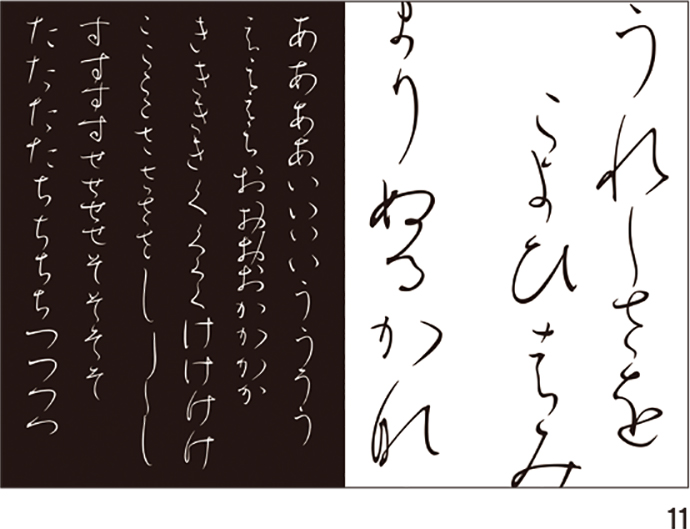 うれしさを
こよひはみ
まりぬるかな
ああああいいいいうううう
ええええおおおおかかかか
ききききくくくくけけけけ
ここここささささしししし
すすすすせせせせそそそそ
たたたたちちちちつつつつ
11